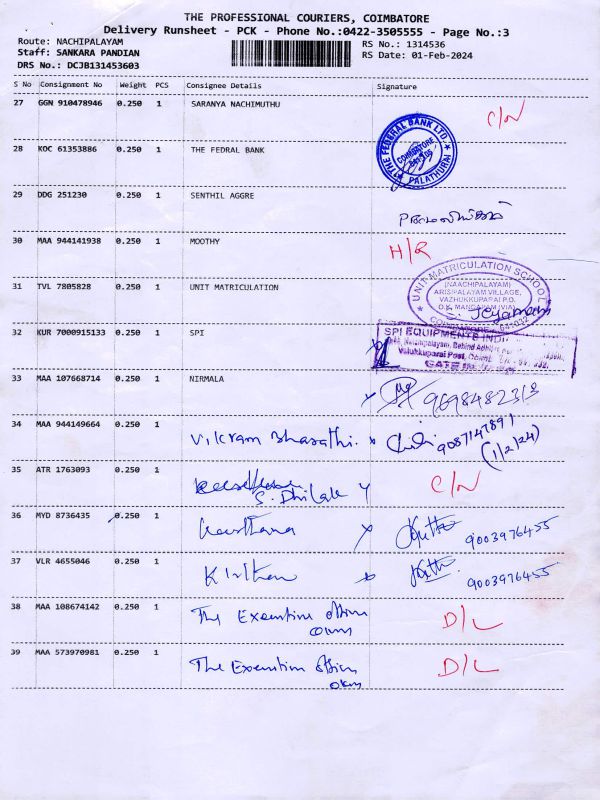 THE PROFESSIONAL COURIERS, COIMBATORE
Delivery Runsheet - PCK - Phone No.:0422-3505555 - Page No.:3
Route: NACHIPALAYAM RS No.: 1314536
Staff: SANKARA PANDIAN RS Date: 01-Feb-2024
DRS No.: DCJB131453603
S No Consignment No Weight PCS Consignee Details Signature
27 GGN 910478946 0.250 1 SARANYA NACHIMUTHU C/N
THE FEDERAL BANK LTD.
COIMBATORE
PALATHURAI
28 KOC 61353886 0.250 1 THE FEDRAL BANK
29 DDG 251230 0.250 1 SENTHIL AGGRE
30 MAA 944141938 0.250 1 MOOTHY H/R
31 TVL 7805828 0.250 1 UNIT MATRICULATION
UNIT MATRICULATION SCHOOL
(NAACHIPALAYAM)
ARISIPALAYAM VILLAGE,
VAZHUKKUPARAI P.O.
O.K. MANDAPAM (VIA)
32 KUR 7000915133 0.250 1 SPI
SPI EQUIPMENTS INDI
Valukkuparai Post,
33 MAA 107668714 0.250 1 NIRMALA
34 MAA 944149664 0.250 1 Vikram Bharathi. 9087147891
(1/2/24)
35 ATR 1763093 0.250 1 C/N
36 MYD 8736435 0.250 1 9003976455
37 VLR 4655046 0.250 1 9003976455
38 MAA 108674142 0.250 1 The Executive D/L
39 MAA 573970981 0.250 1 The Execution D/L